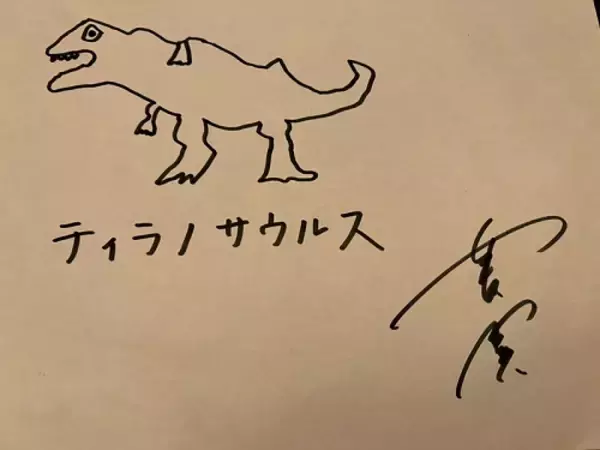 ティラノサウルス